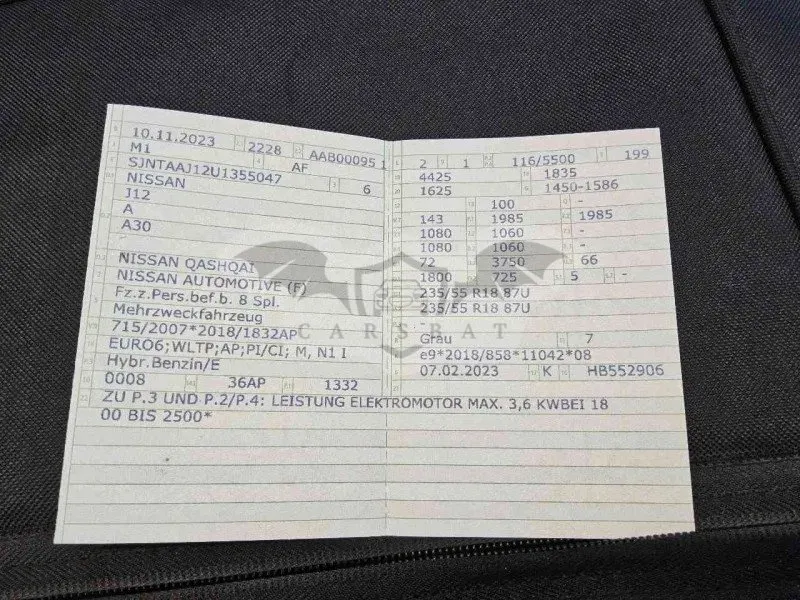 10.11.2023 2228 AAB00095 1
M1 AF
SJNTAAJ12U1355047 6
NISSAN
J12
A
A30
NISSAN QASHQAI
NISSAN AUTOMOTIVE (F)
Fz.z.Pers.bef.b. 8 Spl.
Mehrzweckfahrzeug
715/2007*2018/1832AP
EURO6;WLTP;AP;PI/CI; M, N1 I
Hybr.Benzin/E
0008 36AP 1332
2 1 116/5500 199
4425 1835
1625 1450-1586
100 -
143 1985 1985
1080 1060 -
1080 1060 -
72 3750 66
1800 725 5 -
235/55 R18 87U
235/55 R18 87U
Grau 7
e9*2018/858*11042*08
07.02.2023 K HB552906
ZU P.3 UND P.2/P.4: LEISTUNG ELEKTROMOTOR MAX. 3,6 KWBEI 18
00 BIS 2500*
CARSBAT